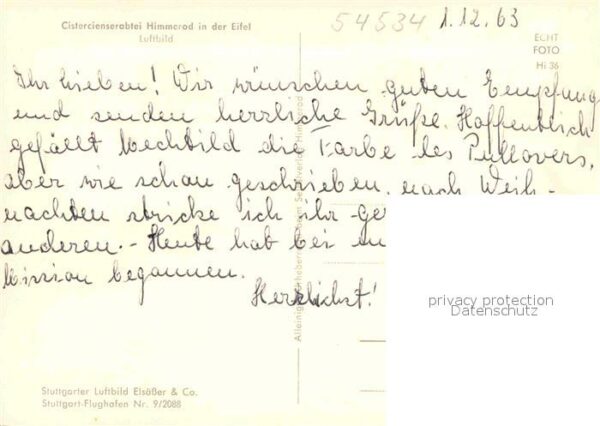 Cistercienserabtei Himmerod in der Eifel
Luftbild
54534
1.12.63
ECHT
FOTO
Hi 36
Ihr Lieben! Wir wünschen guten Empfang
und senden herzliche Grüße. Hoffentlich
gefällt Mechtild die Farbe des Pullovers,
aber wie schon geschrieben, nach Weih-
nachten stricke ich ihr
anderen. - Heute hab bei
Mission begonnen.
Herzlichst!
privacy protection
Datenschutz
Stuttgarter Luftbild Elsäßer & Co.
Stuttgart-Flughafen Nr. 9/2088